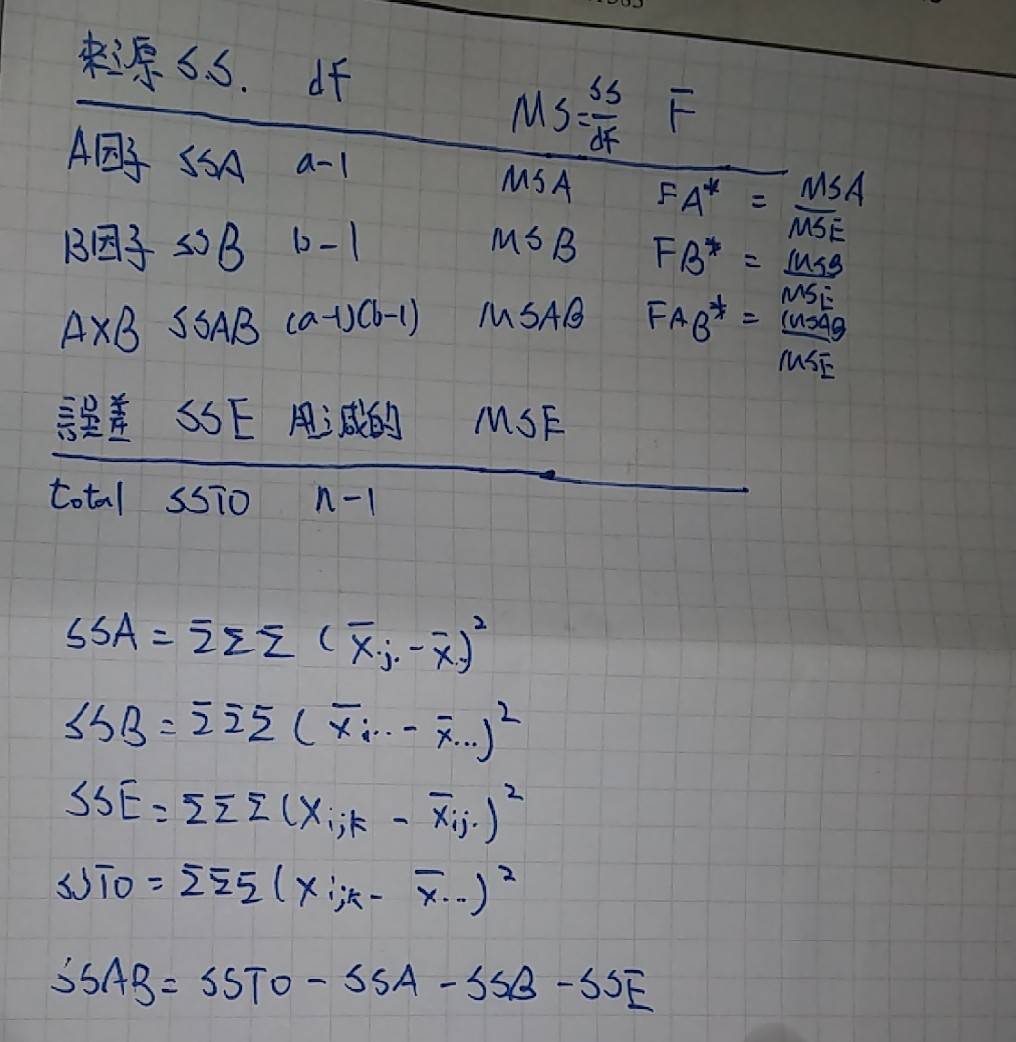 來源 S.S. df MS=SS/df F
A因子 SSA a-1 MSA FA* = MSA/MSE
B因子 SSB b-1 MSB FB* = MSB/MSE
AXB SSAB (a-1)(b-1) MSAB FAB* = MSAB/MSE
誤差 SSE 用減的 MSE
total SSTO n-1
SSA = ΣΣΣ (x̄.j. - x̄..)²
SSB = ΣΣΣ (x̄i.. - x̄...)²
SSE = ΣΣΣ (xijk - x̄ij.)²
SSTO = ΣΣΣ (xijk - x̄...)²
SSAB = SSTO - SSA - SSB - SSE